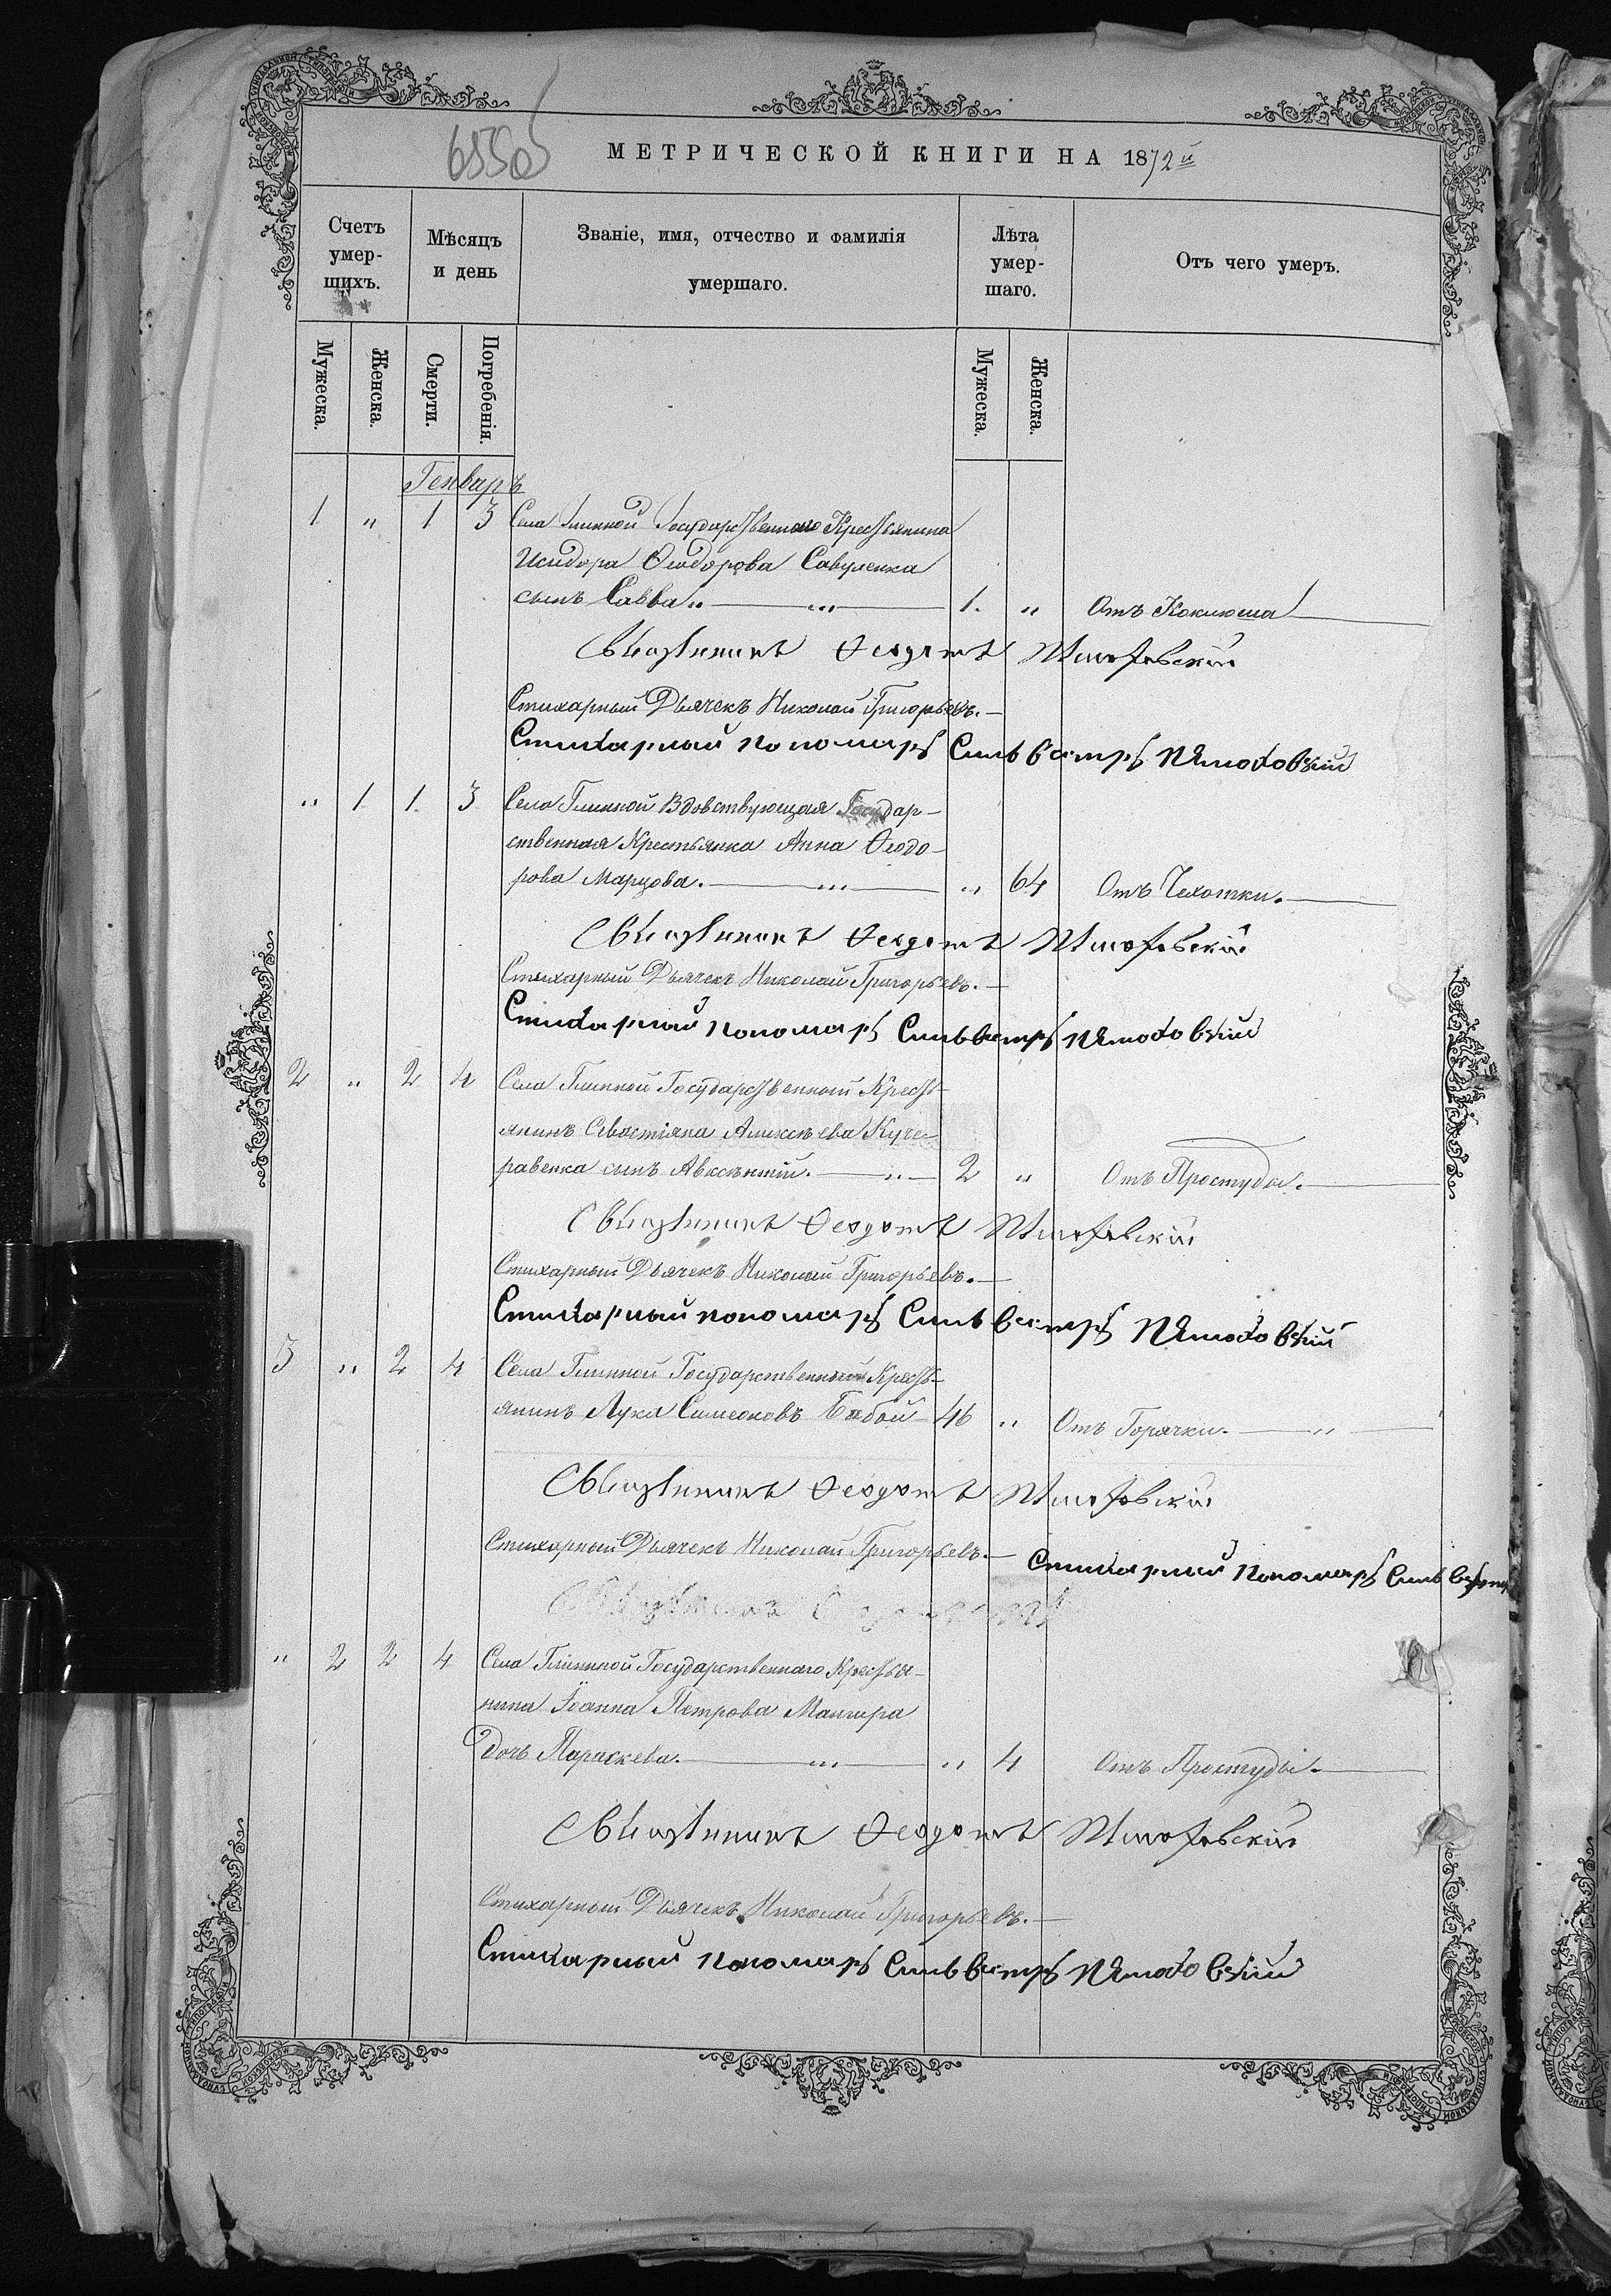 МЕТРИЧЕСКОЙ КНИГИ НА 1872й
Счетъ умер-шихъ.
Мѣсяцъ и день
Званіе, имя, отчество и фамилія умершаго.
Лѣта умер-шаго.
Отъ чего умеръ.
Мужеска. Женска. Смерти. Погребенія. Мужеска. Женска.
Генваръ
1 " 1 3 Села Глинной Государственнаго Крестьянина
Исидора Ѳеодорова Савуленка
сынъ Савва " 1. " Отъ Коклюша
Священникъ Ѳеодотъ
Стихарный Дьячекъ Николай Григорьевъ.
Стихарный пономарь Сильвестръ
" 1 1 3 Села Глинной Вдовствующая Государ-
ственная Крестьянка Анна Ѳеодо-
рова Марцова. " 64 Отъ Чахотки.
Священникъ Ѳеодотъ
Стихарный Дьячекъ Николай Григорьевъ.
Стихарный пономарь Сильвестръ
2 " 2 4 Села Глинной Государственный Кресть-
янинъ Севастіяна Алексѣева Куче-
равенка сынъ Авксентій. 2 " Отъ Простуды.
Священникъ Ѳеодотъ
Стихарный Дьячекъ Николай Григорьевъ.
Стихарный пономарь Сильвестръ
3 " 2 4 Села Глинной Государственный Кресть-
янинъ Лука Симеоновъ Бабой 46 " Отъ Горячки. "
Священникъ Ѳеодотъ
Стихарный Дьячекъ Николай Григорьевъ. Стихарный пономарь
" 2 2 4 Села Глинной Государственнаго Крестья-
нина Іоанна Петрова Мангира
дочь Параскева. " 4 Отъ Простуды.
Священникъ Ѳеодотъ
Стихарный Дьячекъ Николай Григорьевъ.
Стихарный пономарь Сильвестръ